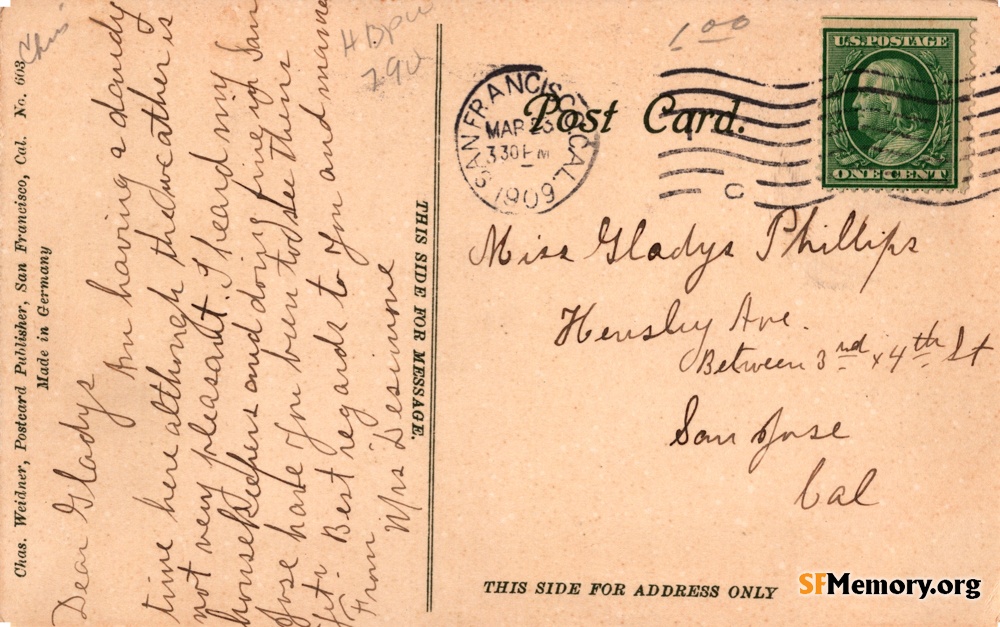 Chas. Weidner, Postcard Publisher, San Francisco, Cal. No. 603
Made in Germany
Dear Gladys
Am having a dandy
time here although the weather is
not very pleasant. I heard my
housekeepers and doing fine in San
Jose have you been to see them
yet. Best regards to you and mama
From
Mrs Desimone
THIS SIDE FOR MESSAGE.
1 00
790
SAN FRANCISCO, CAL.
MAR 23
3 30 PM
1909
C
Post Card.
U.S. POSTAGE
ONE CENT
Miss Gladys Phillips
Hensley Ave.
Between 3rd x 4th St
San Jose
Cal
THIS SIDE FOR ADDRESS ONLY
SFMemory.org